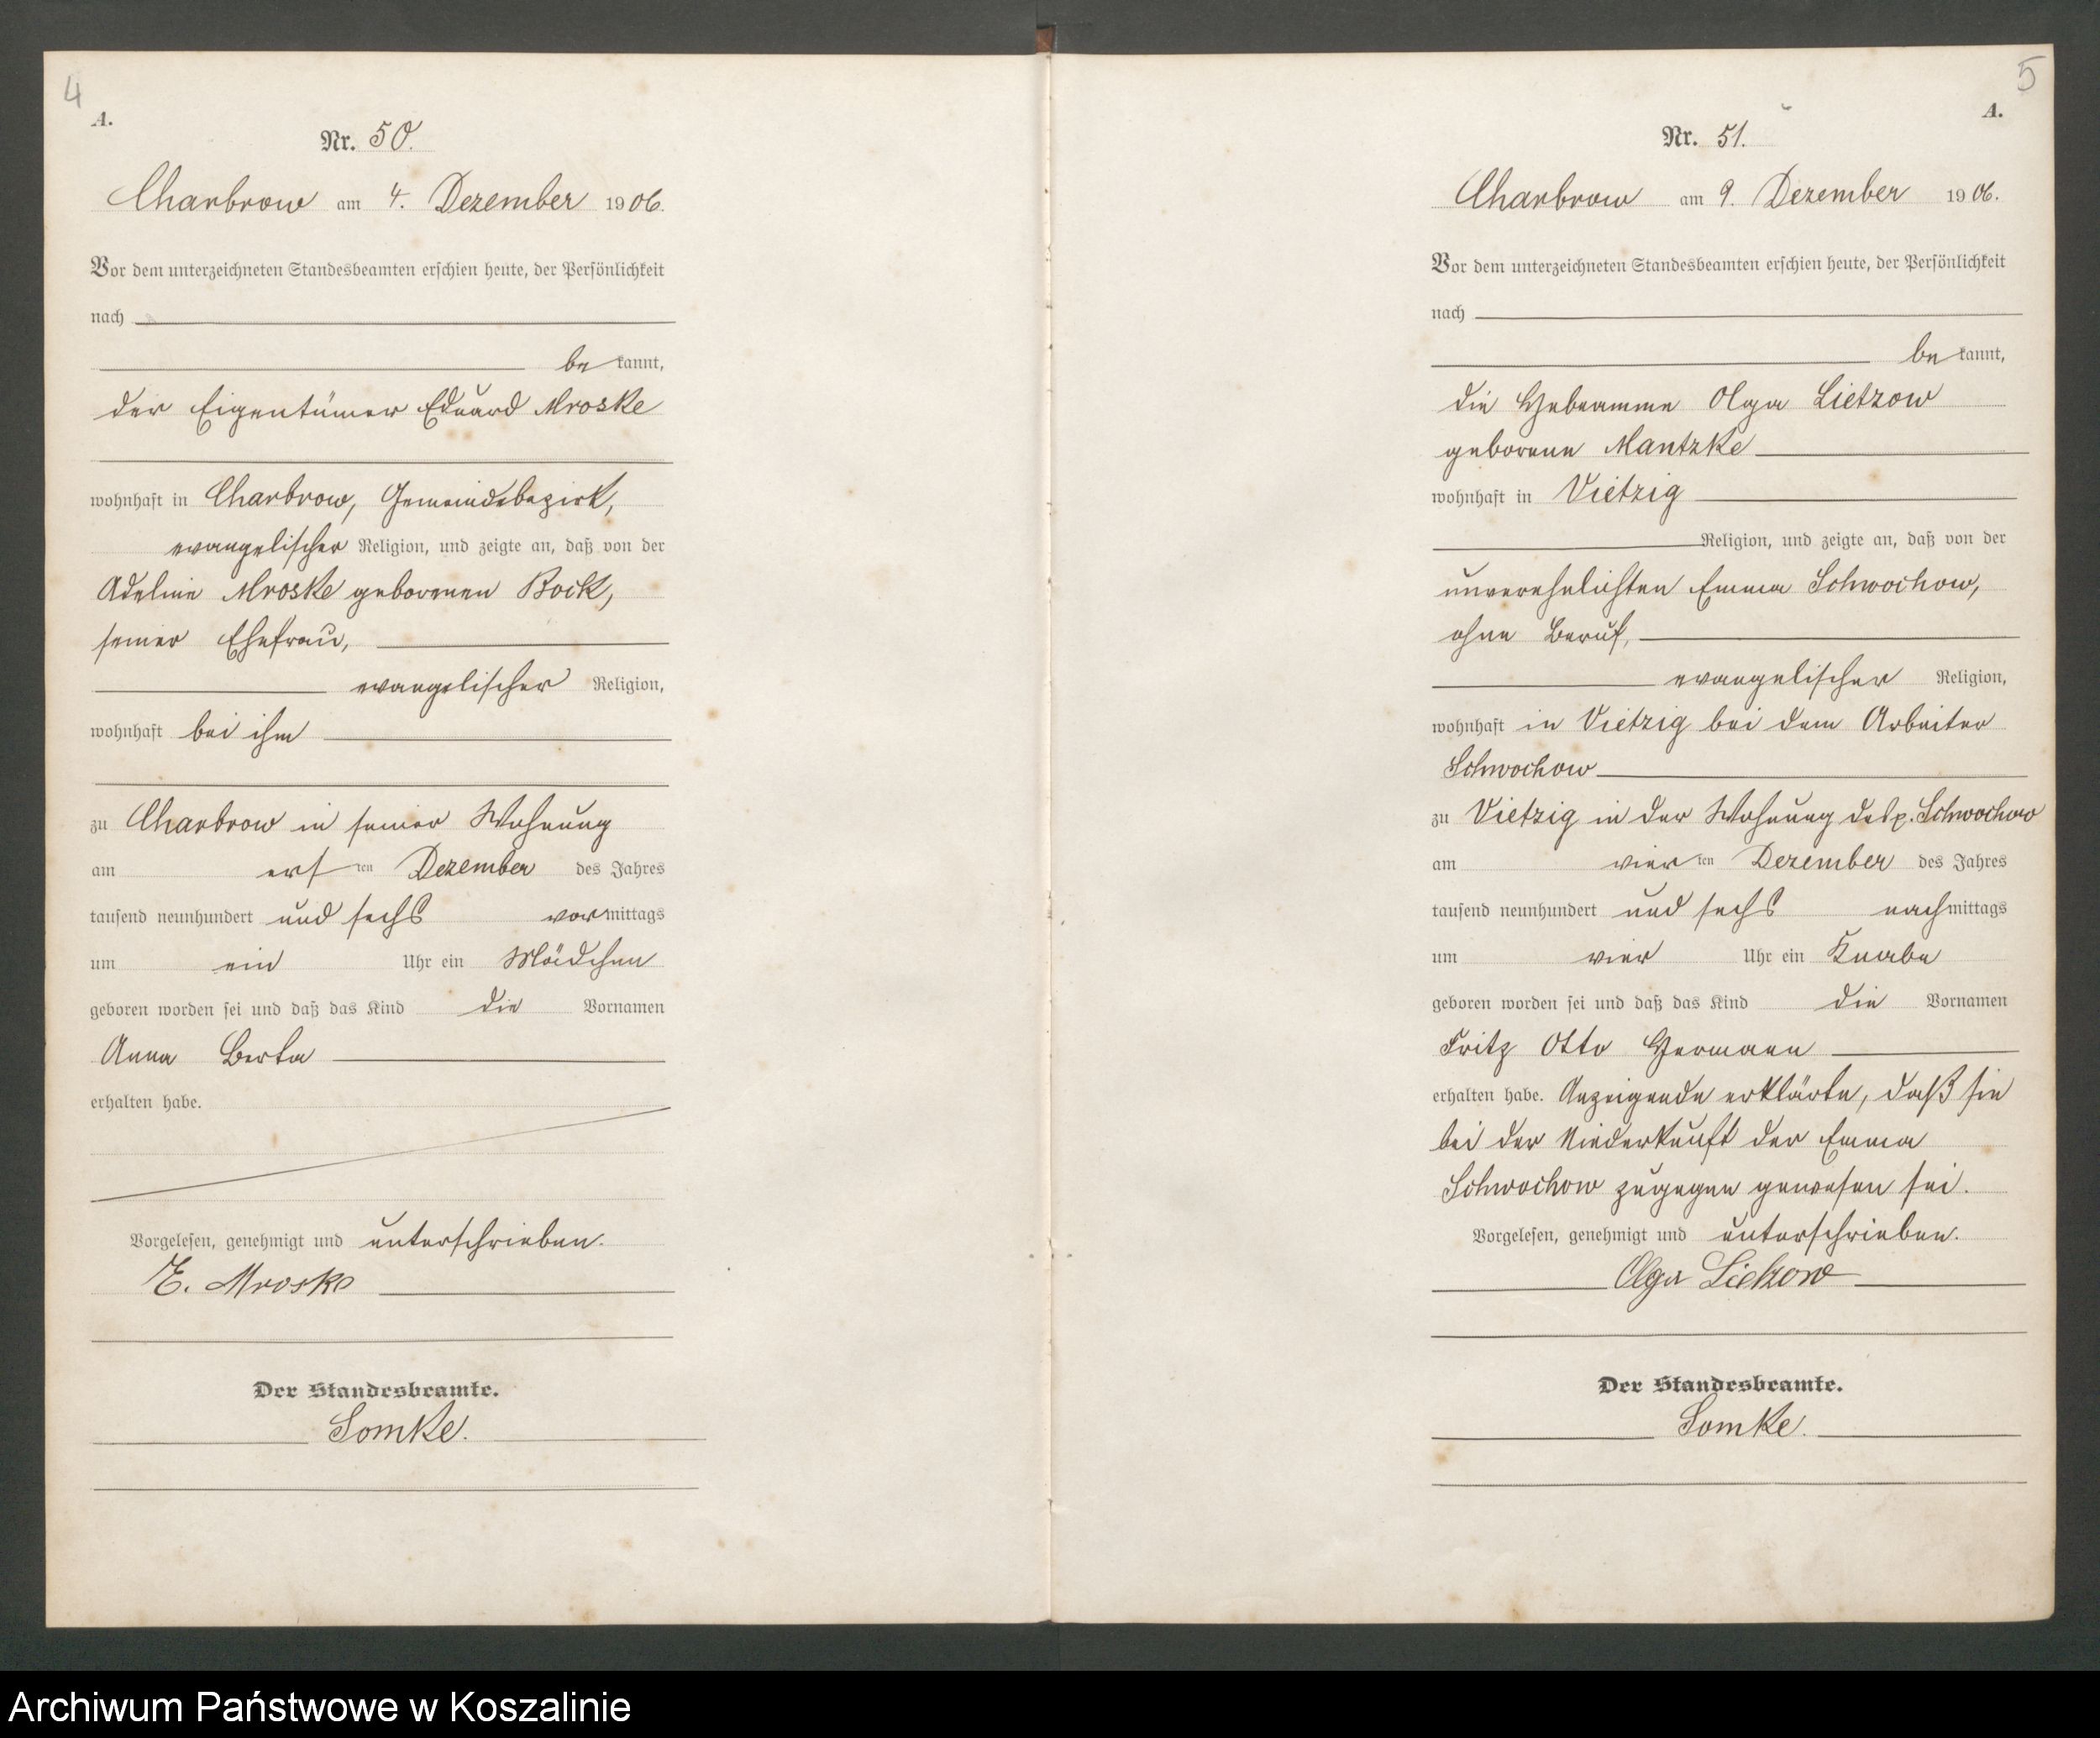 4
A.
Nr. 50.
Charbrow am 4. Dezember 1906.
Vor dem unterzeichneten Standesbeamten erschien heute, der Persönlichkeit
nach
bekannt,
der Eigentümer Eduard Mroske
wohnhaft in Charbrow, Gemeindebezirk,
evangelischer Religion, und zeigte an, daß von der
Adeline Mroske geborenen Bock,
seiner Ehefrau,
evangelischer Religion,
wohnhaft bei ihm
zu Charbrow in seiner Wohnung
am ersten Dezember des Jahres
tausend neunhundert und sechs vormittags
um ein Uhr ein Mädchen
geboren worden sei und daß das Kind die Vornamen
Anna Berta
erhalten habe.
Vorgelesen, genehmigt und unterschrieben.
E. Mroske
Der Standesbeamte.
Somke.
5
A.
Nr. 51.
Charbrow am 9. Dezember 1906.
Vor dem unterzeichneten Standesbeamten erschien heute, der Persönlichkeit
nach
bekannt,
die Hebeamme Olga Lietzow
geborene Mantzke
wohnhaft in Vietzig
Religion, und zeigte an, daß von der
unverehelichten Emma Schwochow,
ohne Beruf,
evangelischer Religion,
wohnhaft in Vietzig bei dem Arbeiter
Schwochow
zu Vietzig in der Wohnung des p. Schwochow
am vierten Dezember des Jahres
tausend neunhundert und sechs nachmittags
um vier Uhr ein Knabe
geboren worden sei und daß das Kind die Vornamen
Fritz Otto Hermann
erhalten habe. Anzeigende erklärte, daß sie
bei der Niederkunft der Emma
Schwochow zugegen gewesen sei.
Vorgelesen, genehmigt und unterschrieben.
Olga Lietzow
Der Standesbeamte.
Somke.
Archiwum Państwowe w Koszalinie